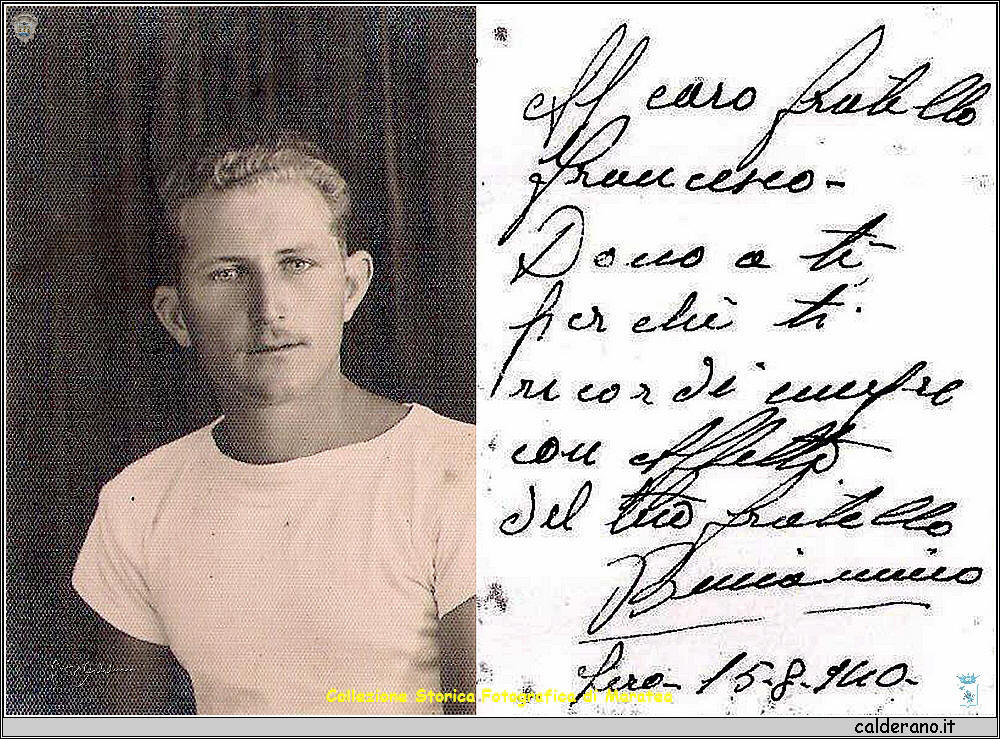 Al caro fratello
Francesco-
Dono a ti
perchè ti
ricordi sempre
con Affetto
del tuo fratello
Beniamino
15-8-940-
Collezione Storica Fotografica di Maratea
calderano.it